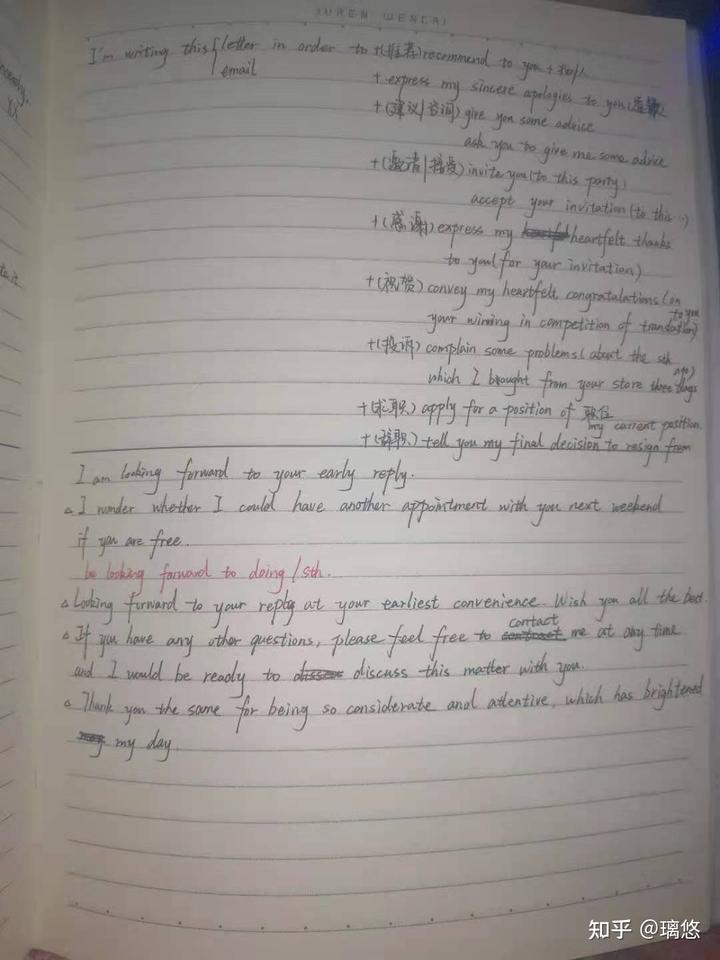 JUREN WENCAI
I'm writing this letter in order to +(推荐) recommend to you +
email
+ express my sincere apologies to you(道歉)
+(建议/咨询) give you some advice
ask you to give me some advice
+(邀请/接受) invite you(to this party)
accept your invitation(to this ..)
+(感谢) express my heartfelt thanks
to you(for your invitation)
+(祝贺) convey my heartfelt congratalations(on
to you
your winning in competition of translation)
+(投诉) complain some problems(about the sth
which I brought from your store three days
ago)
+(求职) apply for a position of 职位
my current position.
+(辞职) tell you my final decision to resign from
I am looking forward to your early reply.
△ I wonder whether I could have another appointment with you next weekend
if you are free.
be looking forward to doing / sth.
△ Looking forward to your reply at your earliest convenience. Wish you all the best.
contact
△ If you have any other questions, please feel free to me at any time
and I would be ready to discuss this matter with you.
△ Thank you the same for being so considerate and attentive, which has brightened
my day.
知乎 @璃悠